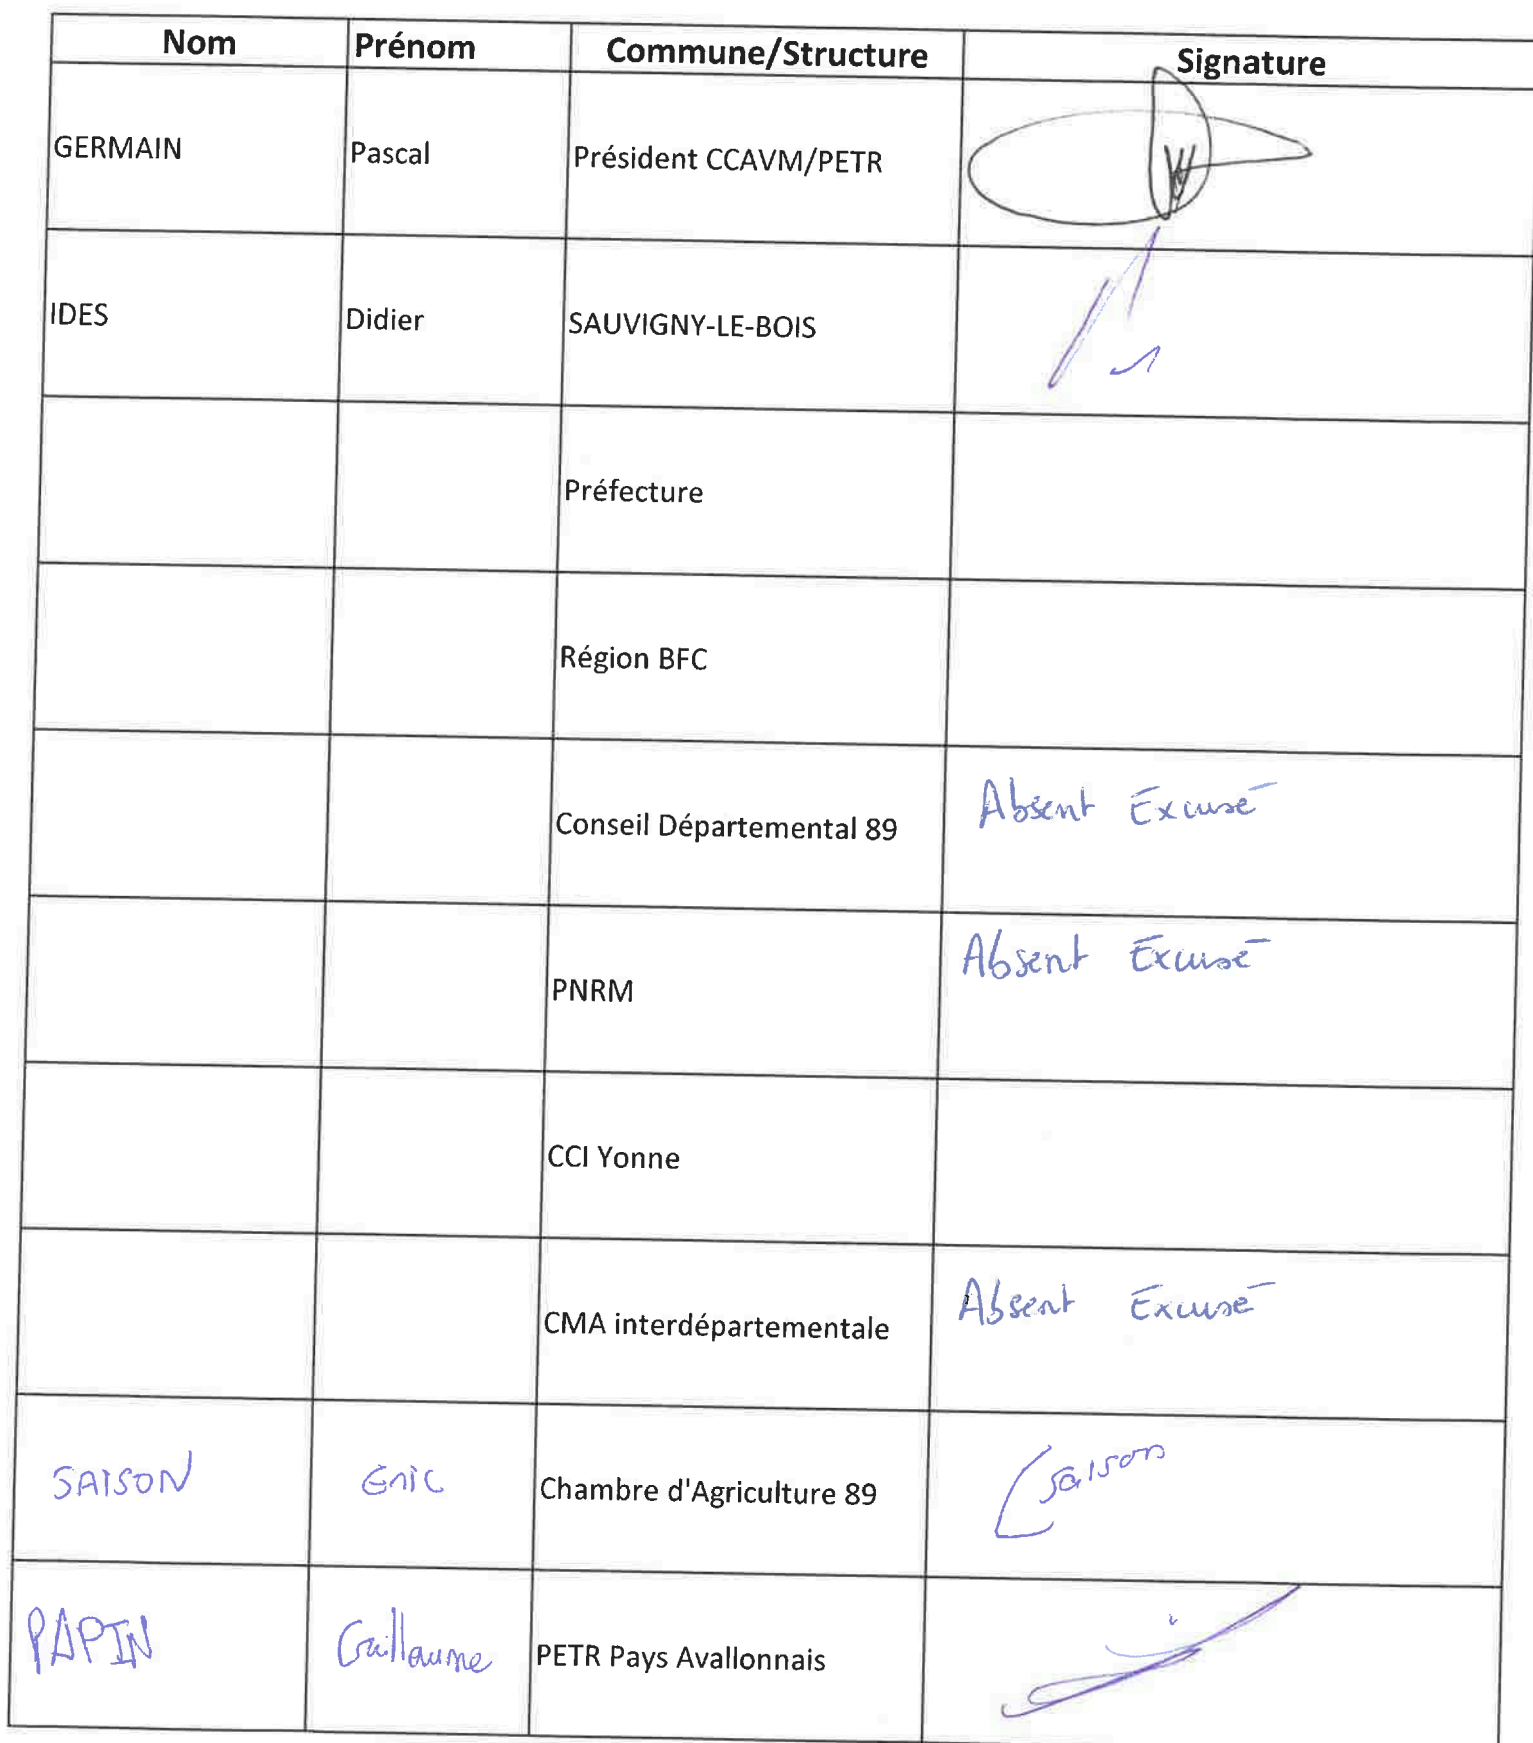 Nom Prénom Commune/Structure Signature
GERMAIN Pascal Président CCAVM/PETR
IDES Didier SAUVIGNY-LE-BOIS
Préfecture
Région BFC
Conseil Départemental 89 Absent Excusé
PNRM Absent Excusé
CCI Yonne
CMA interdépartementale Absent Excusé
SAISON Eric Chambre d'Agriculture 89 Saison
PAPIN Guillaume PETR Pays Avallonnais